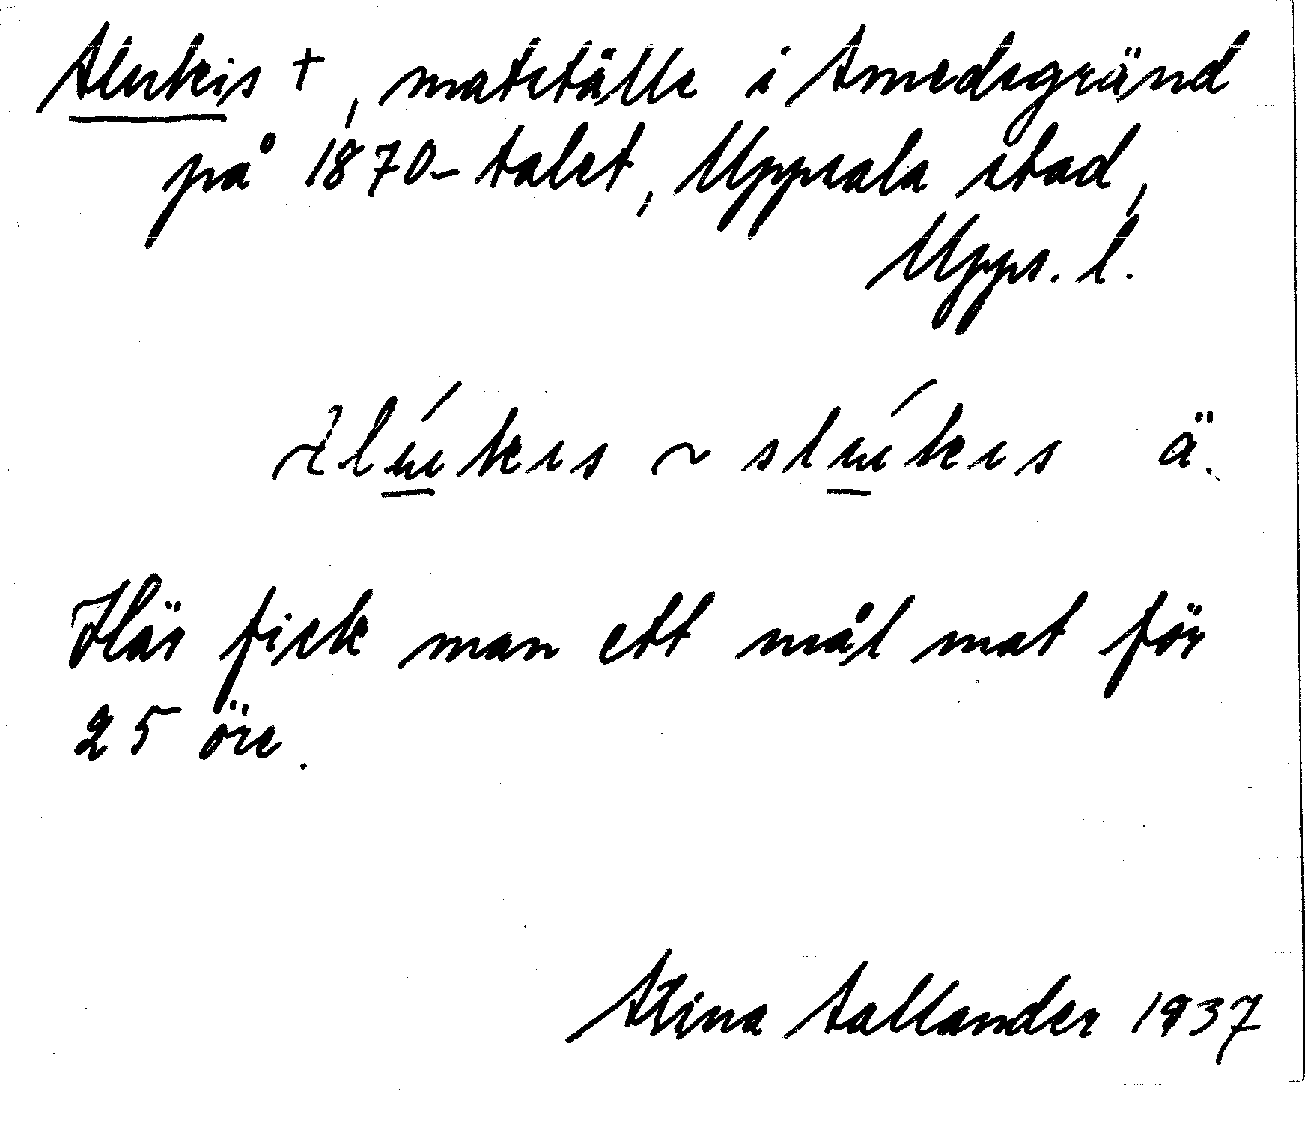 Slukis †, matställe i Smedsgränd
på 1870-talet, Uppsala stad,
Upps. l.
~ slúkıs ä.
Här fick man ett mål mat för
25 öre.
Stina Sallander 1937